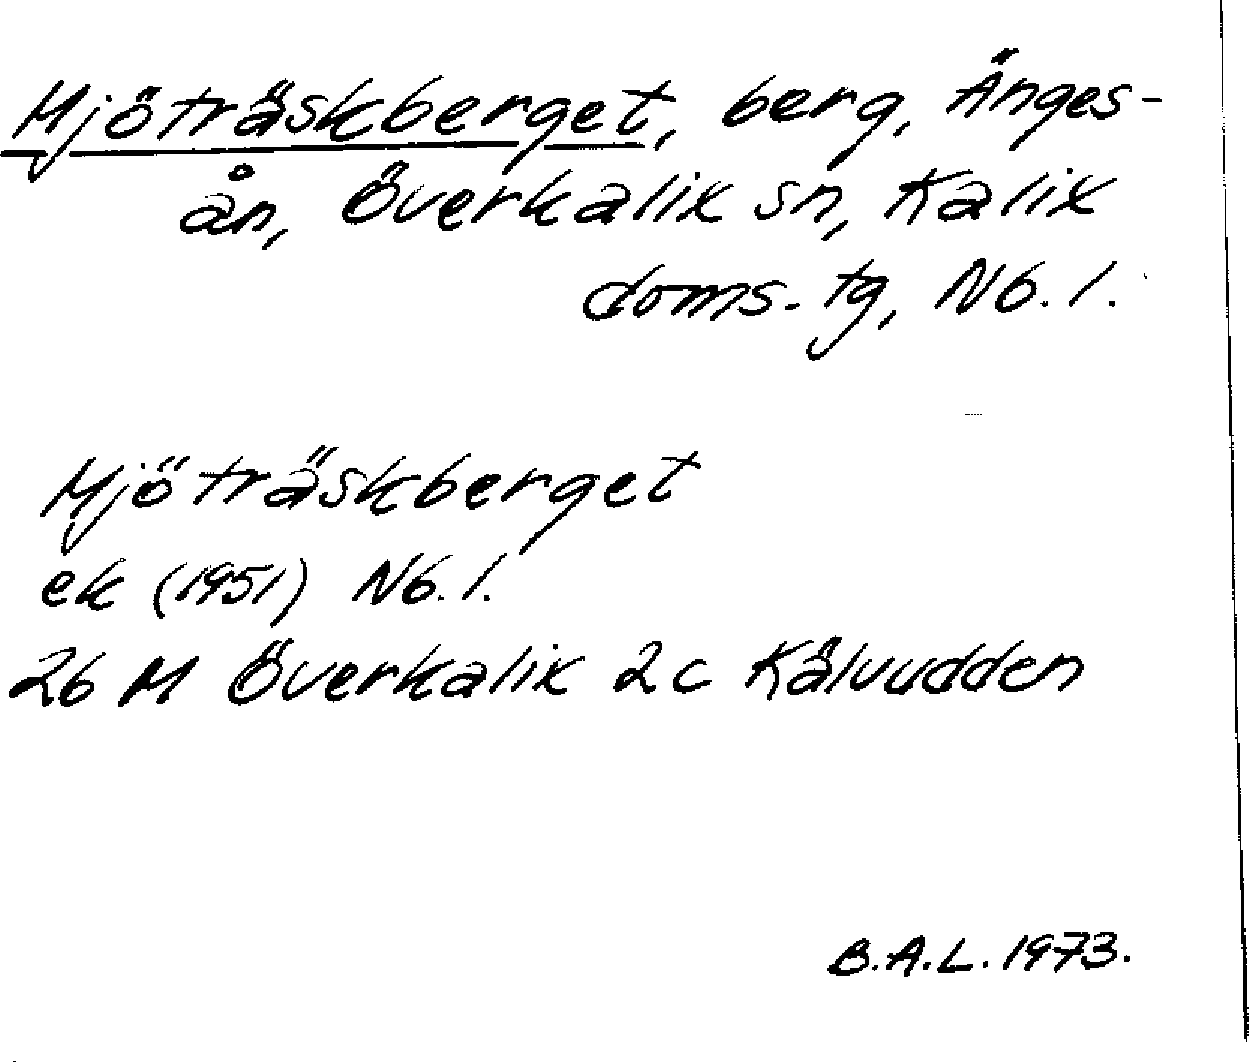 Mjöträskberget, berg, Änges-
ån, Överkalix sn, Kalix
doms. tg, Nb. l.
Mjöträskberget
ek (1951) Nb. l.
26 M Överkalix 2c Kälvudden
B.A.L. 1973.